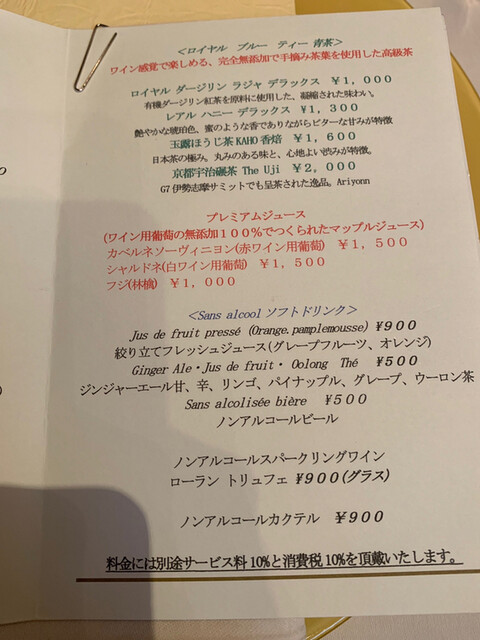 ＜ロイヤル ブルー ティー 青茶＞
ワイン感覚で楽しめる、完全無添加で手摘み茶葉を使用した高級茶
ロイヤル ダージリン ラジャ デラックス ￥１，０００
有機ダージリン紅茶を原料に使用した、凝縮された味わい。
レアル ハニー デラックス ￥１，３００
艶やかな琥珀色、蜜のような香でありながらビターな甘みが特徴
玉露ほうじ茶 KAHO 香焙 ￥１，６００
日本茶の極み。丸みのある味と、心地よい渋みが特徴。
京都宇治碾茶 The Uji ￥２，０００
G7 伊勢志摩サミットでも呈茶された逸品。Ariyonn
プレミアムジュース
(ワイン用葡萄の無添加１００％でつくられたマップルジュース)
カベルネソーヴィニヨン(赤ワイン用葡萄) ￥１，５００
シャルドネ(白ワイン用葡萄) ￥１，５００
フジ(林檎) ￥１，０００
＜Sans alcool ソフトドリンク＞
Jus de fruit pressé (Orange.pamplemousse) ￥９００
絞り立てフレッシュジュース(グレープフルーツ、オレンジ)
Ginger Ale・Jus de fruit・ Oolong Thé ￥５００
ジンジャーエール甘、辛、リンゴ、パイナップル、グレープ、ウーロン茶
Sans alcolisée bière ￥５００
ノンアルコールビール
ノンアルコールスパークリングワイン
ローラン トリュフェ ￥９００(グラス)
ノンアルコールカクテル ￥９００
料金には別途サービス料 10%と消費税 10%を頂戴いたします。